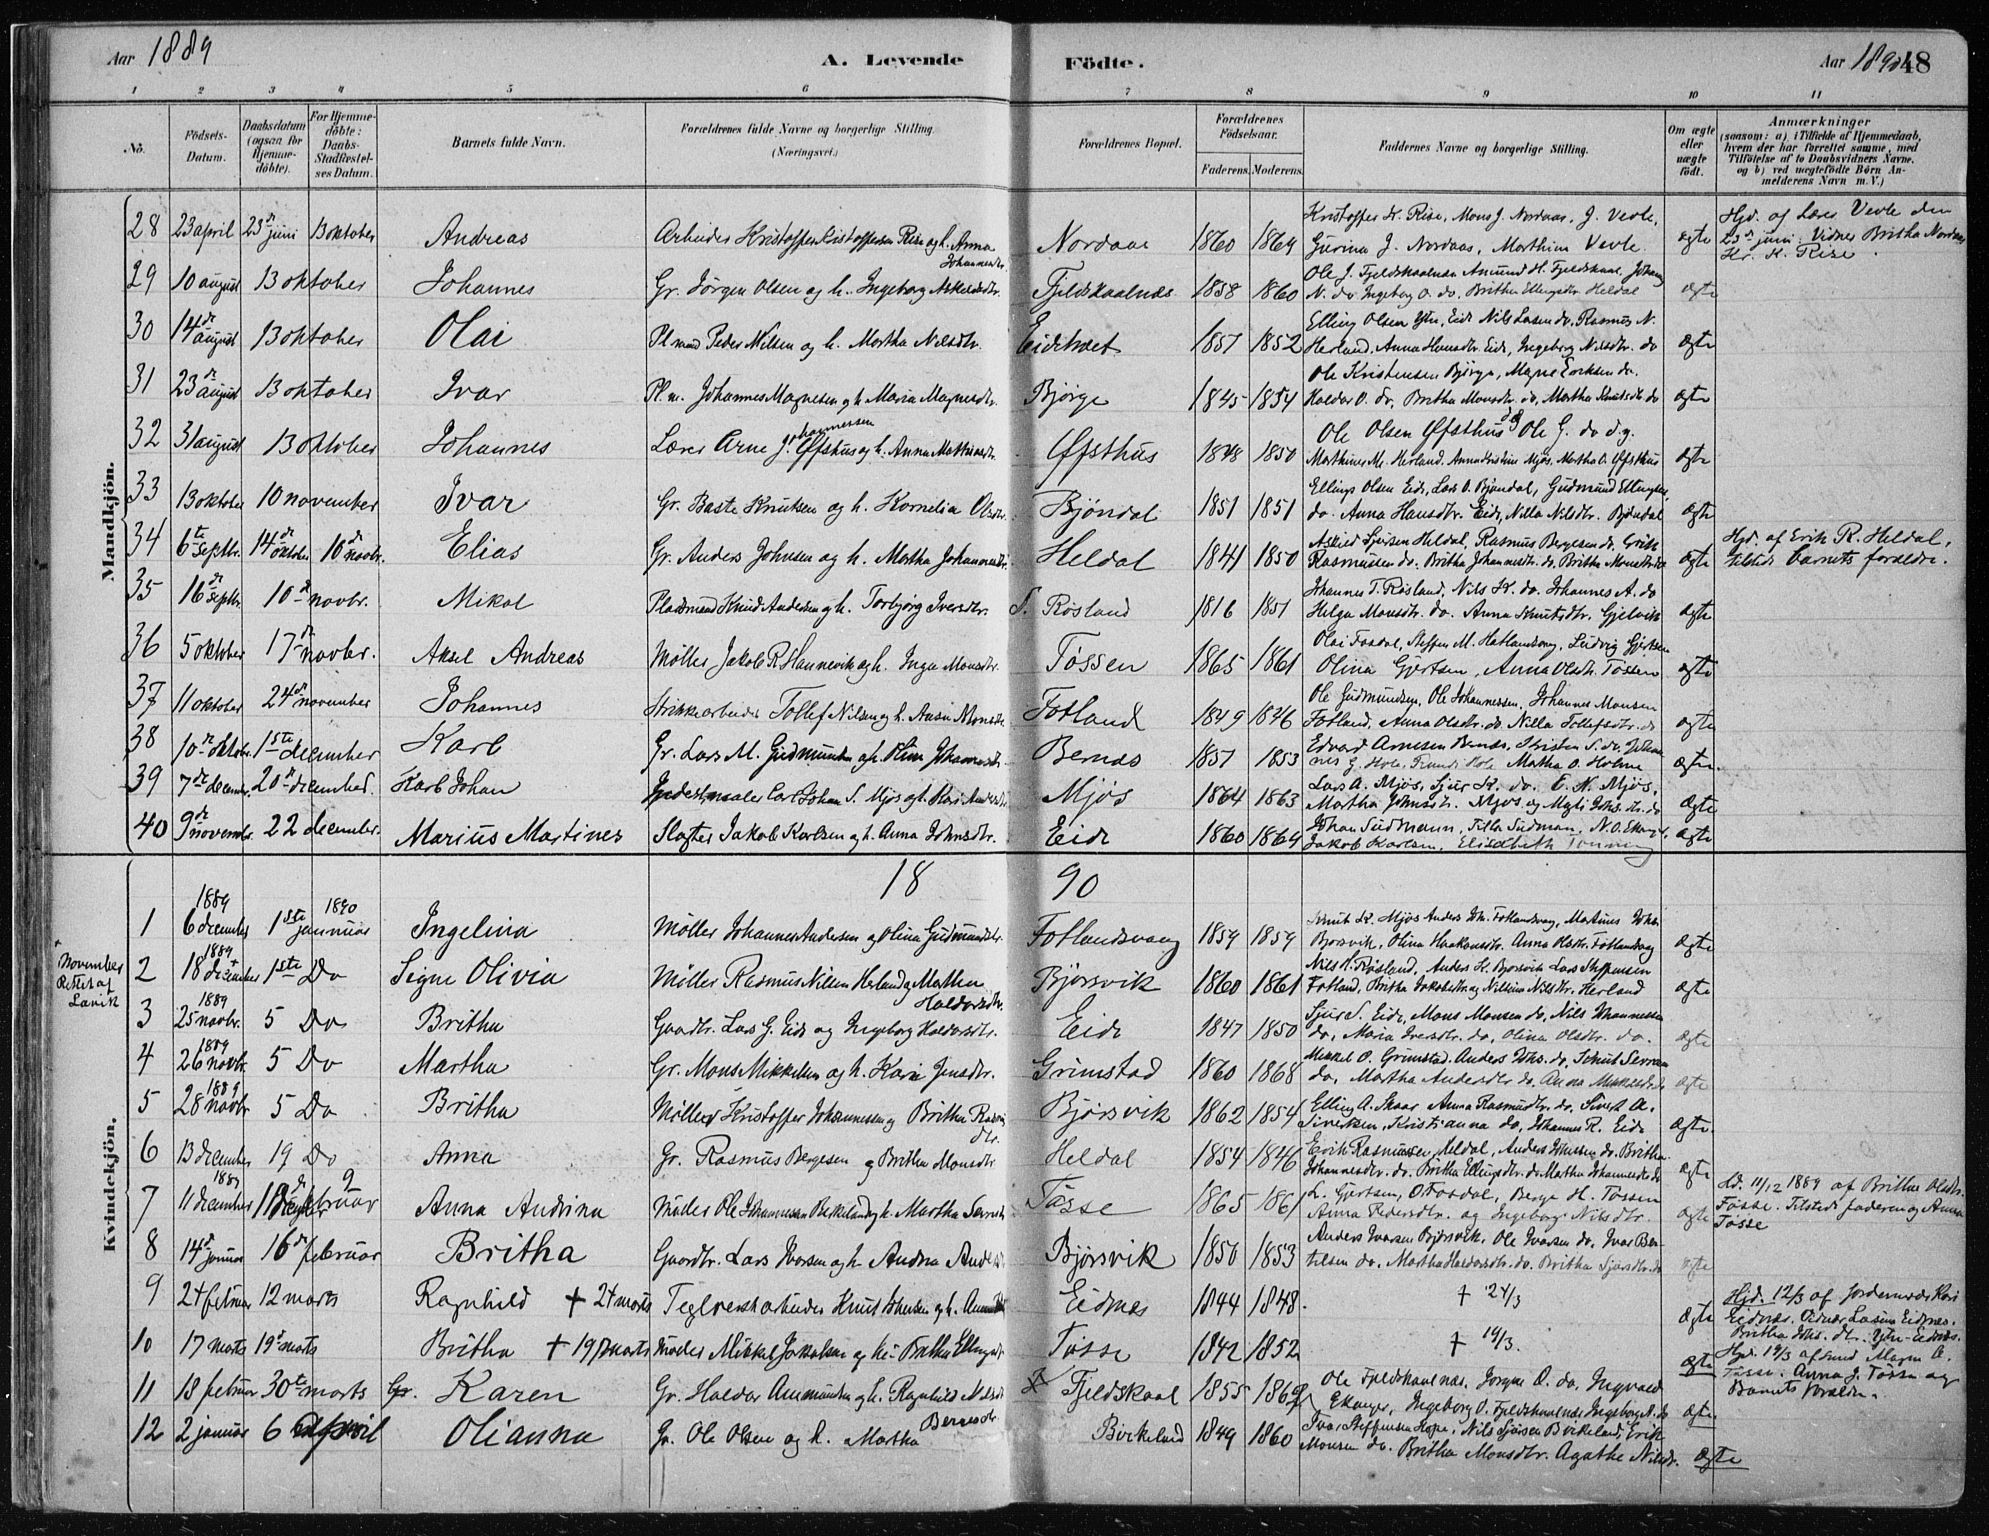 Aar 1889
A. Levende
Födte.
Aar 1890
48
1 2 3 4 5 6 7 8 9 10 11
No.
Födsets-Datum.
Daabsdatum (ogsaa för Hjemme-döbte).
For Hjemme-döbte: Daabs-Stadfæstel-ses Datum.
Barnets fulde Navn.
Forældrenes fulde Navne og borgerlige Stilling.
(Næringsvei.)
Forældrenes Bopæl.
Forældrenes Födselsaar.
Faderens. Moderens.
Faddernes Navne og borgerlige Stilling.
Om ægte eller uægte födt.
Anmærkninger
(saasom: a) i Tilfælde af Hjemmedaab, hvem der har forrettet samme, med Tilföielse af to Daabsvidners Navne, og b) ved uægtefödte Börn An-melderens Navn m. V.)
Mandkjön.
28 23 april 23de juni 13 oktober Andreas Arbeider Kristoffer Kristoffersen Rise og h. Anna Johannesdtr. Nordaas 1860 1864 Kristoffer Kr. Rise, Mons J. Nordaas, J. Vevle, Gurina J. Nordaas, Marthina Vevle. ægte Hjd. af Lærer Vevle den 23de juni. Vidner Britha Nordaas Kr. K. Rise.
29 10 august 13 oktober Johannes Gr. Jörgen Olsen og h. Ingeborg Askildsdtr. Fjeldskaalnæs 1858 1860 Ole J. Fjeldskaalnæs Amund H. Fjeldskaal, N. do. Ingeborg O. do. Britha Ellingsdtr. Heldal ægte
30 14de august 13 oktober Olai Pl.mand Peder Nilsen og h. Martha Nilsdtr. Eidetræet 1857 1852 Elling Olsen Ytr. Eide Nils Larsen do, Rasmus N. Herland, Anna Hansdtr. Eide, Ingeborg Nilsdtr. do ægte
31 23de august 13 oktober Ivar Pl.m. Johannes Magnesen og h. Maria Magnesdtr. Bjørge 1845 1854 Ole Kristensen Bjørge, Magne Eriksen do. Haldor O. do, Britha Monsdtr. do, Martha Knutsdtr do ægte
32 31 august 13 oktober Johannes Lærer Arne Johannessen Øfsthus og h. Anna Mathiasdtr. Øfsthus 1848 1850 Ole Olsen Øfsthus Ole G. do d.y. Marthines M. Herland, Anna Kristine Mjøs, Martha O. Øfsthus ægte
33 13 oktober 10 november Ivar Gr. Baste Knutsen og h. Kornelia Olsdtr. Bjøndal 1851 1851 Elling Olsen Eide, Lars O. Bjøndal, Gudmund Ellingsen, do. Anna Hansdtr. Eide, Nilla Nilsdtr. Bjøndal ægte
34 6te septbr. 14de oktober 10de novbr. Elias Gr. Anders Johnsen og h. Martha Johannesdtr. Heldal 1841 1850 Heldal, Rasmus Bergesen do. Erik Rasmussen do. Britha Johannesdtr. do. Britha Monsdtr. do ægte Hjd. af Erik R. Heldal, tilstede barnets forældre.
35 16de septbr. 10de novbr. Mikal Pladsmand Knud Andersen og h. Torbjørg Iversdtr. S. Røsland 1816 1851 Johannes T. Røsland, Nils K. do. Johannes A. do Helga Monsdtr. do. Anna Knutsdtr. Gjelvik ægte
36 5 oktober 17de novbr. Aksel Andreas Møller Jakob R. Hannevik og h. Inga Monsdtr. Tøssen 1865 1861 Olai Fosdal, Steffen M. Hatlandsvaag, Ludvig Gjertsen Olina Gjertsen, Anna Olsdtr. Tøssen ægte
37 11 oktober 24de november Johannes Strikkearbeider Tollef Nilsen og h. Monsdtr Fotland 1849 1846 Ole Gudmundsen, Ole Johannessen, Johannes Monsen Fotland, Anna Olsdtr. do Nilla Tollefsdtr. do ægte
38 10de oktober 1ste december Karl Gr. Lars M. Gudmundsen og h. Olina Johannesdtr. Bernæs 1857 1853 Edvard Arnesen Bernæs, Kristen S. do. Martha O. Holme ægte.
39 7de decembr. 20de december. Karl Johan Carl Johan S. Mjøs og h. Kari Andersdtr. Mjøs 1864 1863 Lars A. Mjøs, Sjur K. do. E. N. Mjøs, Martha Johnsdtr. Mjøs og do ægte
40 9de novembr 22 december. Marius Martines Slagter Jakob Karlsen og h. Anna Johnsdtr. Eide 1860 1864 Johan Sudmann, Tilla Sudman, N. O. Jakob Karlsen, Elisabeth Tonning ægte
18 90
Kvindekjön.
+ November Rettet af Lavik
1 1889 6 december 1ste januar 1890 Ingelina Møller Johannes Andersen og Olina Gudmundsdtr. Fotlandsvaag 1859 1859 Knut K. Mjøs Anders Joh. Fotlandsvaag, Martines Johs. Bjørsvik, Olina Haakonsdtr. Anna Olsdtr. Fotlandsvaag ægte
2 1889 18 december+ 1ste Do Signe Olivia Møller Rasmus Nilsen Herland og Martha Haldorsdtr. Bjørsvik 1860 1861 Nils H. Røsland, Anders H. Bjørsvik Lars Steffensen Fotland, Britha Jakobsdtr. og Nilsina Nilsdtr. Herland ægte
3 1889 25 novbr. 5 Do Britha Gaardbr. Lars G. Eide og Ingeborg Haldorsdtr. Eide 1847 1850 Sjur S. Eide, Mons Monsen do, Nils Johannessen do, Maria Iversdtr. do, Olina Olsdtr. do. ægte
4 1889 26 novbr. 5 Do Martha Gr. Mons Mikkelsen og h. Kari Jensdtr. Grimstad 1860 1868 Mikkel O. Grimstad Anders Johs. do, Knut do, Martha Andersdtr do, Anna Mikkelsdtr. do ægte
5 1889 28 novbr. 5 Do Britha Møller Kristoffer Johannessen og Britha Rasmusdtr. Bjørsvik 1862 1854 Elling A. Skaar Anna Rasmusdtr. do, Sivert A. Sivertsen, Kristianna do, Johannes R. Eide ægte.
6 13 december 19 Do Anna Gr. Rasmus Bergesen og Britha Monsdtr Heldal 1854 1846 Erik Rasmussen Heldal, Anders Johnsen do. Britha Johannesdtr. do. Britha Ellingsdtr. do. Martha Johannesdtr. do ægte
7 1889 11 december 9de februar Anna Andrina Møller Ole Johannessen Birkeland og h. Martha Tøsse 1865 1861 L. Gjertsen, O. Fosdal, Berge H. Tøssen Anna Pedersdtr. og Ingeborg Nilsdtr. ægte Hd. 11/12 1889 af Britha Olsdtr. Tøsse. Tilstede faderen og Anna Tøsse
8 14de januar 16de februar Britha Gaardbr. Lars Ivarsen og h. Andrea Bjørsvik 1850 1853 Anders Ivarsen Bjørsvik, Ole Ivarsen do, Ivar Ber-telsen do, Martha Haldorsdtr. do, Britha Sjursdtr. do ægte
9 24 februar 12 marts Ragnhild + 24 marts Teglverksarbeider Knut Johnsen og h. Eidnes 1844 1848. + 24/3 ægte Hjd. 12/3 af Jordemoder Kari Eidnæs. Vidner Lasina Eidnes. Britha Johs. dtr. Ytre-Eidnæs.
10 17 marts 19de marts Britha + 19 marts Møller Mikkel Jakobsen og h. Britha Ellingsdtr Tøsse 1842 1852 + 19/3. ægte Hjd. 19/3 af Magne A. Tøsse. Anna J. Tøssen og Barnets forældre.
11 18 februar 30te marts Gr. Karen Gr. Haldor Ammundsen og h. Ragnhild Nilsdtr Fjeldskaal 1855 1869 Ole Fjeldskaalnæs, Jørgen O. do, Ingvald Ekanger, Ingeborg O. Fjeldskaalnæs Ingeborg N. do ægte
12 2 januar 6 april Olianna Gr. Ole Olsen og h. Martha Bergesdtr. Birkeland 1849 1860 Ivar Steffensen Hope, Nils Sjursen Birkeland, Erik Monsen do. Britha Monsdtr. Agathe Nilsdtr. ægte